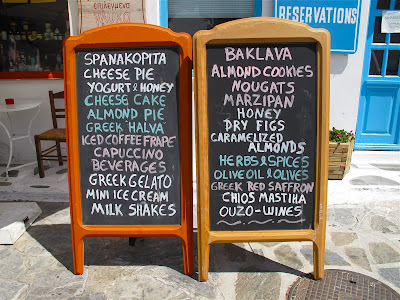 επιλεγμένο
RESERVATIONS
SPANAKOPITA
CHEESE PIE
YOGURT & HONEY
CHEESE CAKE
ALMOND PIE
GREEK "HALVA"
ICED COFFEE FRAPE
CAPUCCINO
BEVERAGES
GREEK GELATO
MINI ICE CREAM
MILK SHAKES
BAKLAVA
ALMOND COOKIES
NOUGATS
MARZIPAN
HONEY
DRY FIGS
CARAMELIZED
ALMONDS
HERBS & SPICES
OLIVE OIL & OLIVES
GREEK RED SAFFRON
CHIOS MASTIHA
OUZO-WINES